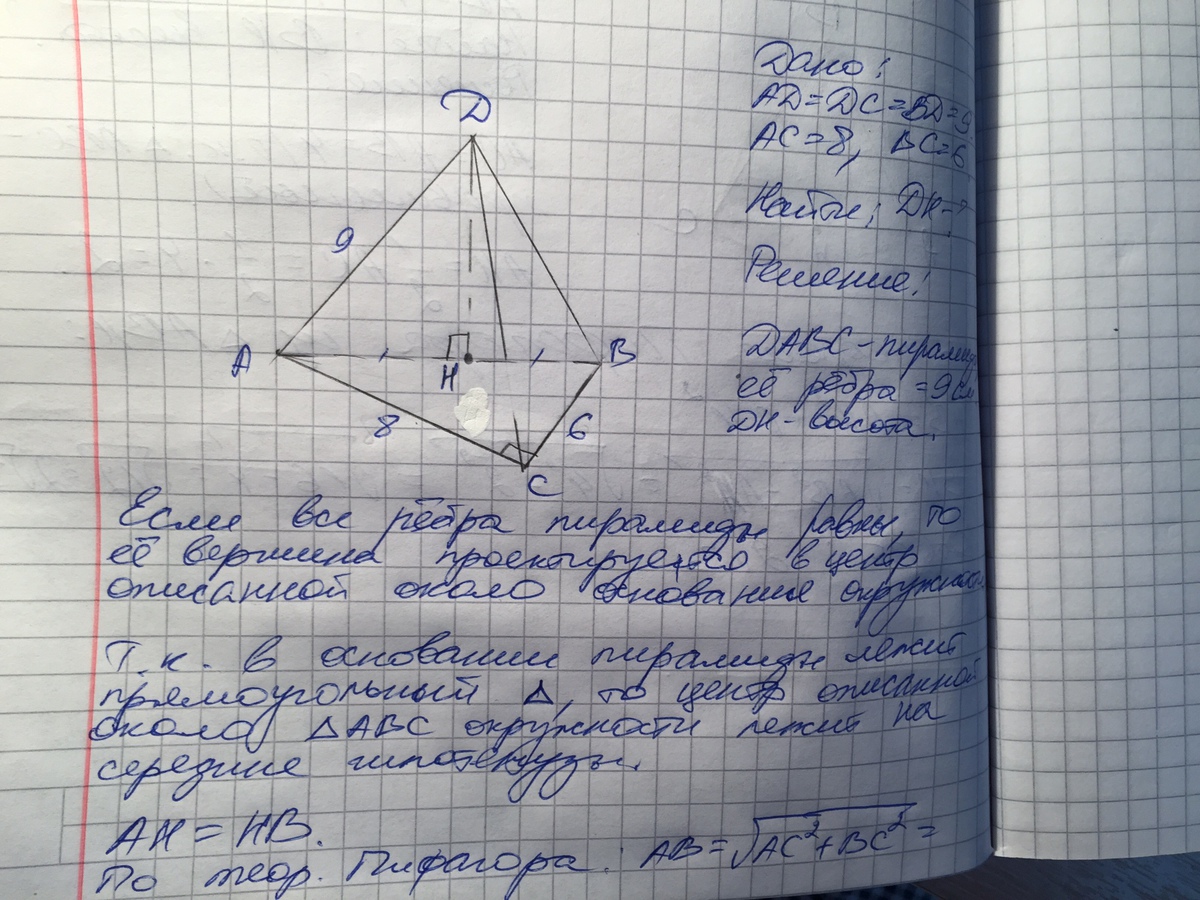 D
9
A
H
B
8
6
C
Дано:
AD=DC=BD=9
AC=8, BC=6
Найти: DH-?
Решение:
DABC-пирамид
её рёбра =9см
DH-высота.
Если все рёбра пирамиды равны, то
её вершина проектируется в центр
описанной около основания окружности
Т.к. в основании пирамиды лежит
прямоугольный Δ, то центр описанной
около ΔABC окружности лежит на
середине гипотенузы.
AH = HB.
По теор. Пифагора: AB=√AC²+BC² =